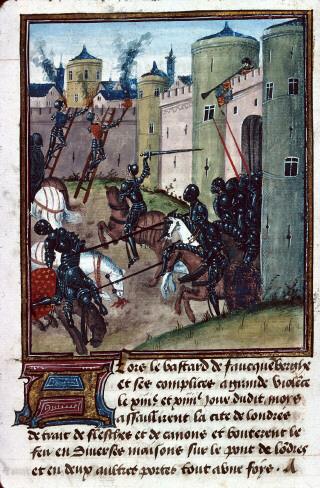 Lors le bastard de faucqueberghe
et ses complices a grande violẽce
le xiiiᵉ et xiiiiᵉ Jour dudit moys
assaillirent la cite de londres
de trait de flesches et de canons et bouterent le
feu en diverses maisons sur le pont de lõdres
et en deux aultres portes tout a une foys. A